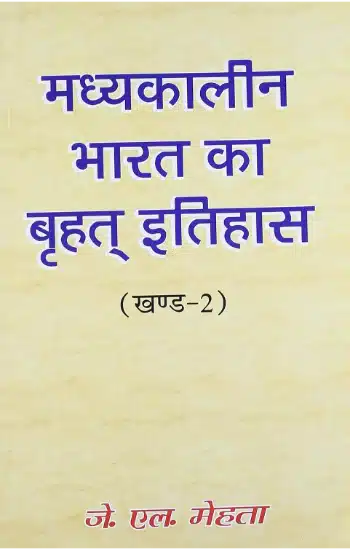 मध्यकालीन
भारत का
बृहत् इतिहास
(खण्ड-2)
जे. एल. मेहता